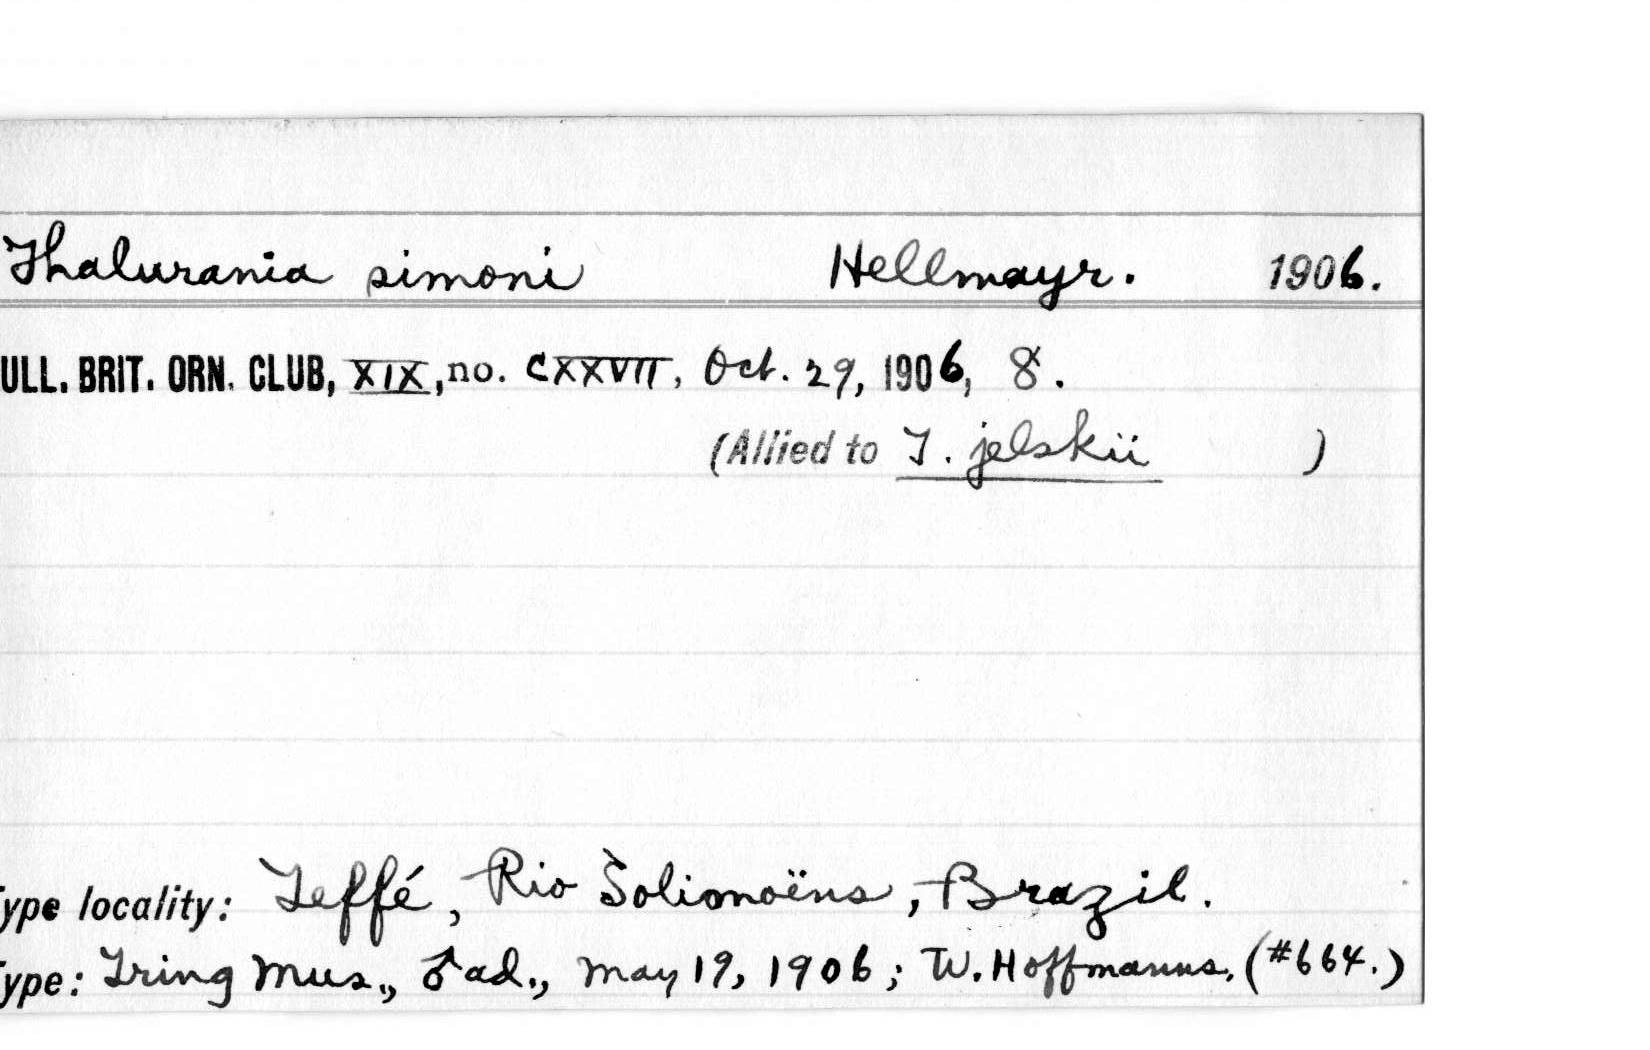 Thalurania simoni Hellmayr. 1906.
ULL. BRIT. ORN. CLUB, XIX, no. CXXVII, Oct. 29, 1906, 8.
(Allied to T. jelskii )
ype locality: Teffé, Rio Solimoëns, Brazil.
ype: Tring Mus., ♂ ad., May 19, 1906; W. Hoffmanns, (#664.)